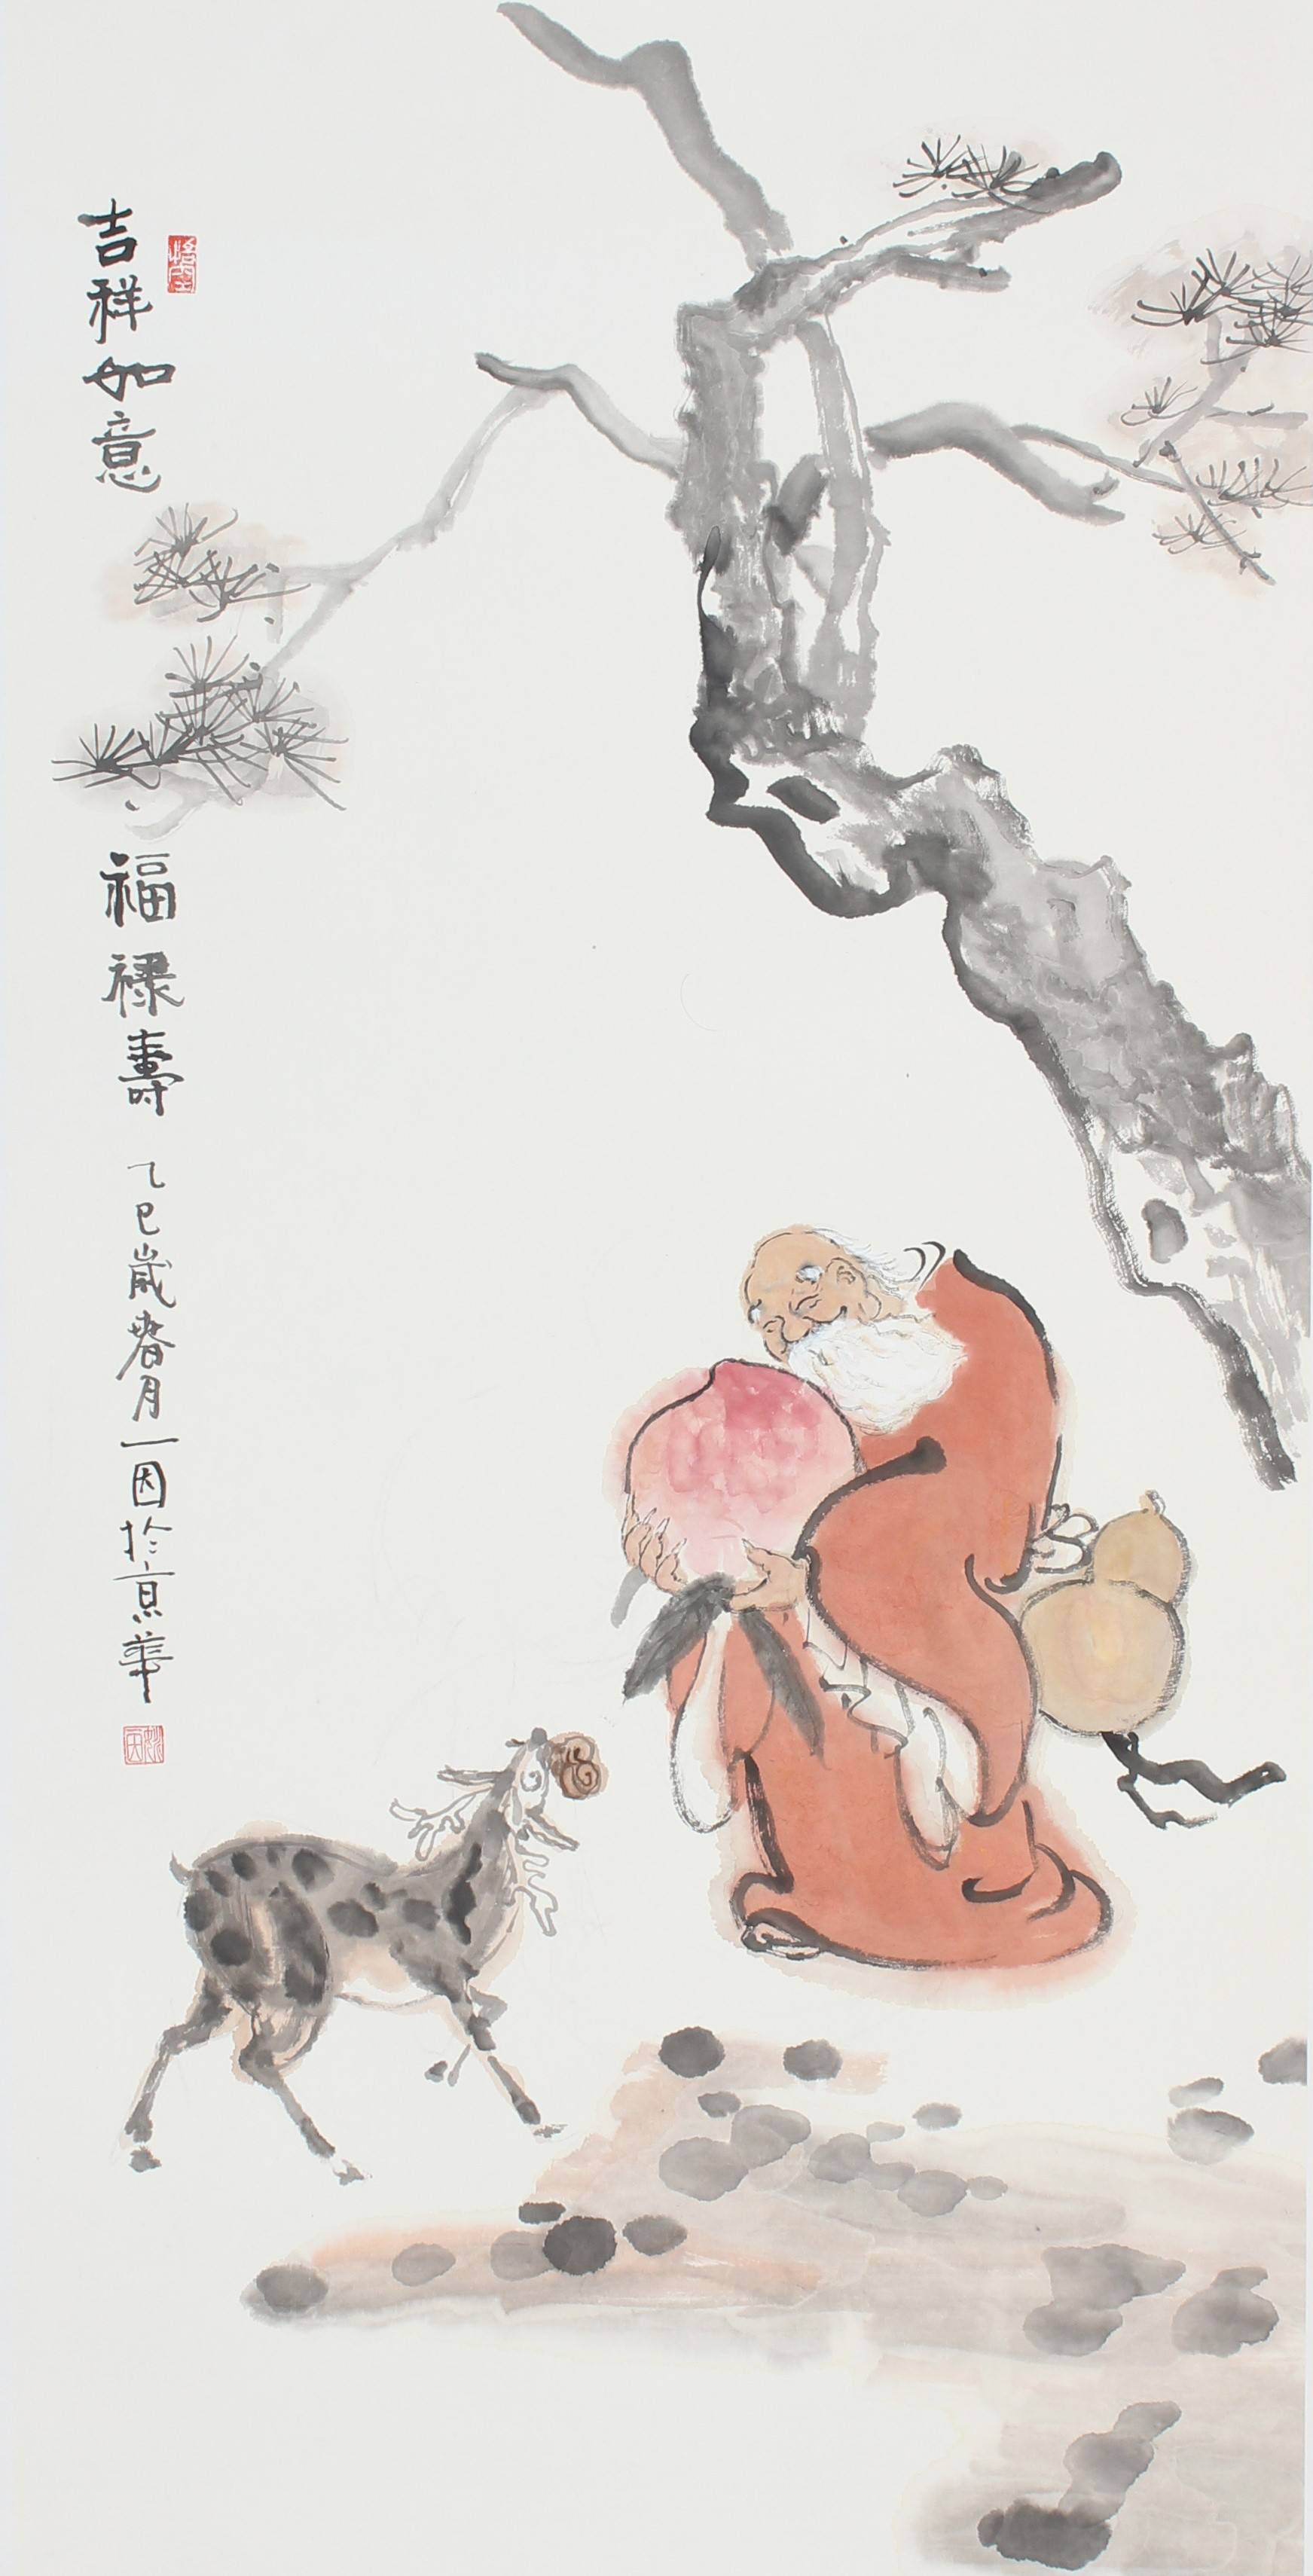 吉祥如意
福禄壽 乙巳歲春月一因於京華